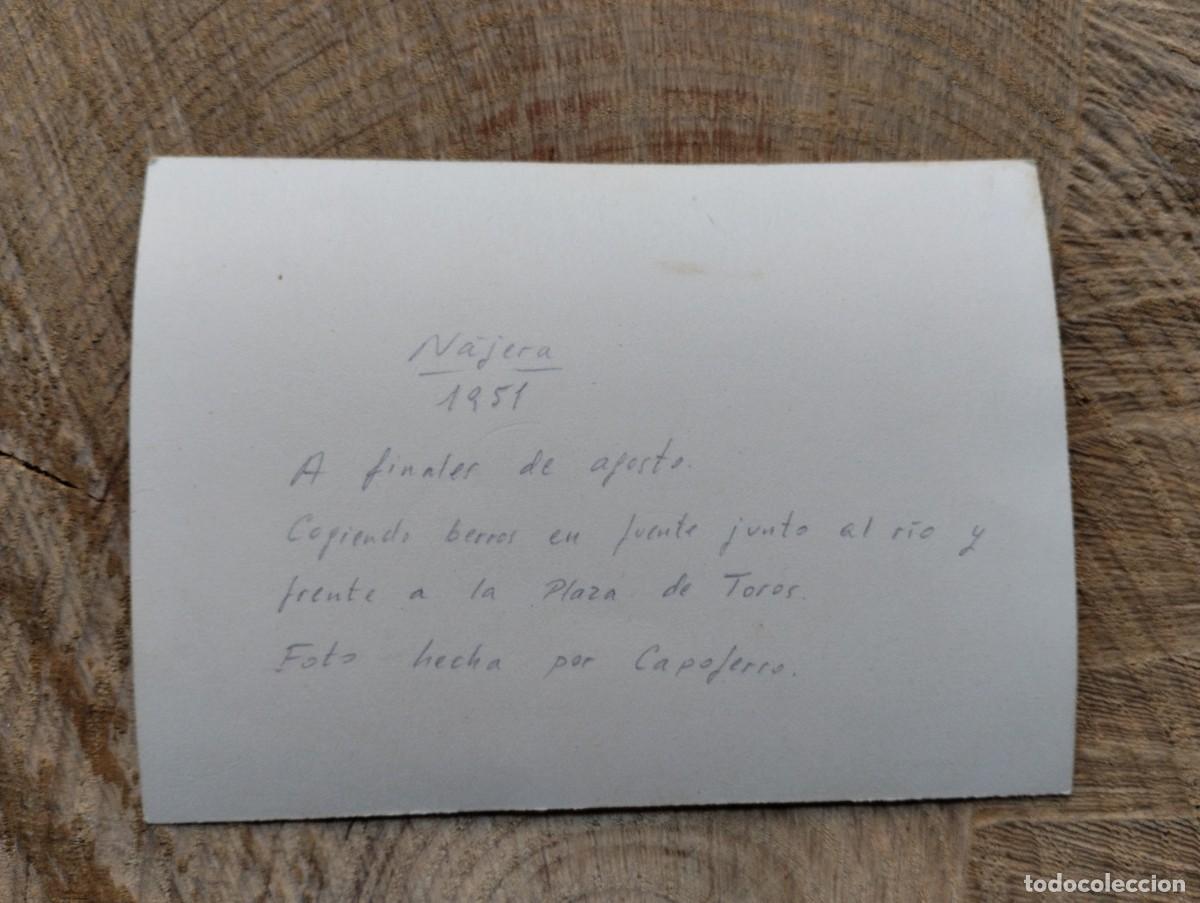 Nájera
1951
A finales de agosto.
Cogiendo berros en fuente junto al río y
frente a la Plaza de Toros.
Foto hecha por Capoferro.
todocoleccion